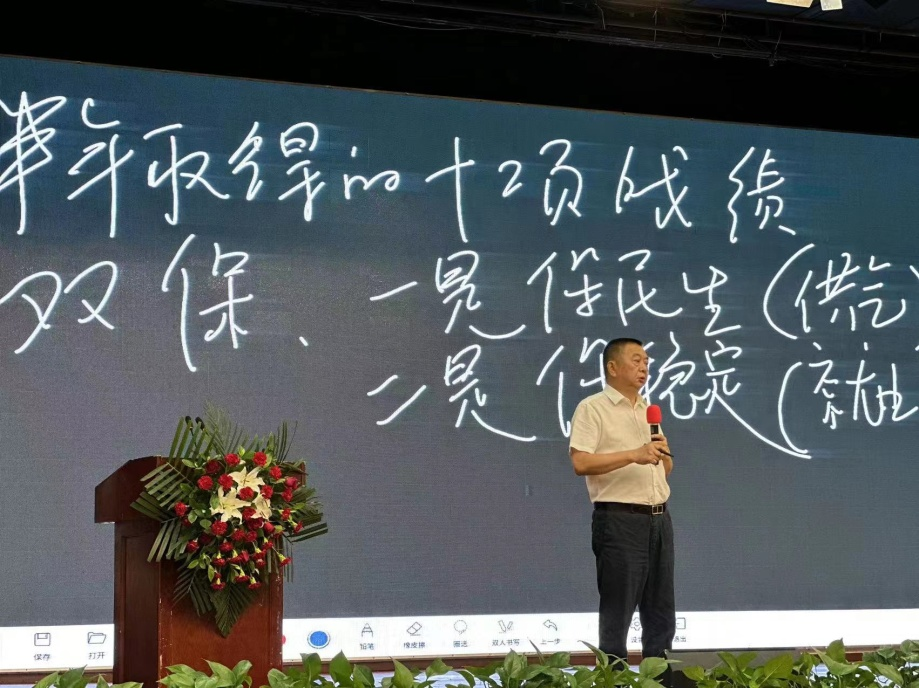 半年取得的十二项成绩
双保、一是保民生(供气)
二是保稳定(就业
保存 打开 铅笔 橡皮擦 圈选 双人书写 上一步